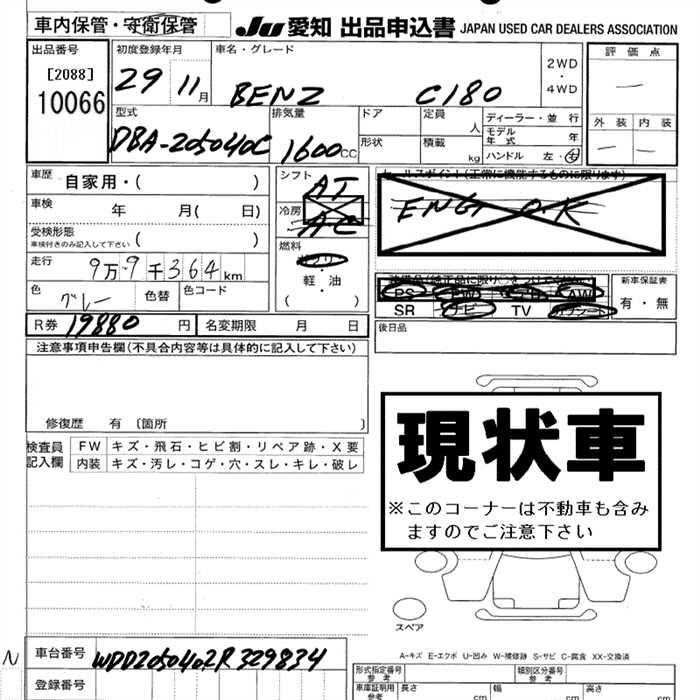 車内保管・守衛保管
JU 愛知 出品申込書 JAPAN USED CAR DEALERS ASSOCIATION
出品番号
[2088]
10066
初度登録年月
29 11月
車名・グレード
BENZ C180
2WD
・
4WD
評価点
—
外装 内装
— —
型式
DBA-205040C
排気量
1600CC
ドア
形状
定員
人
積載
kg
ディーラー・並行
モデル年式 年
ハンドル 左・右
車歴 自家用・( )
車検 年 月( 日)
受検形態
車検付きのみ記入して下さい ( )
走行 9万9千364km
色 グレー 色替 色コード
シフト AT
冷房 AC
燃料
ガソリン
軽・油
( )
セールスポイント(正常に機能するものに限ります)
ENG O.K
PS PW AW
SR ナビ TV
新車保証書
有・無
後日品
R券 19880円 名変期限 月 日
注意事項申告欄(不具合内容等は具体的に記入して下さい)
修復歴 有 〔箇所 〕
検査員記入欄
FW キズ・飛石・ヒビ割・リペア跡・X要
内装 キズ・汚レ・コゲ・穴・スレ・キレ・破レ
現状車
※このコーナーは不動車も含み
ますのでご注意下さい
スペア
A-キズ E-エクボ U-凹み W-補修跡 S-サビ C-腐食 XX-交換済
N
車台番号 WDD2050402R329834
登録番号
形式指定番号
参考
類別区分番号
参考
車庫証明用
参考
長さ cm
幅 cm
高さ cm